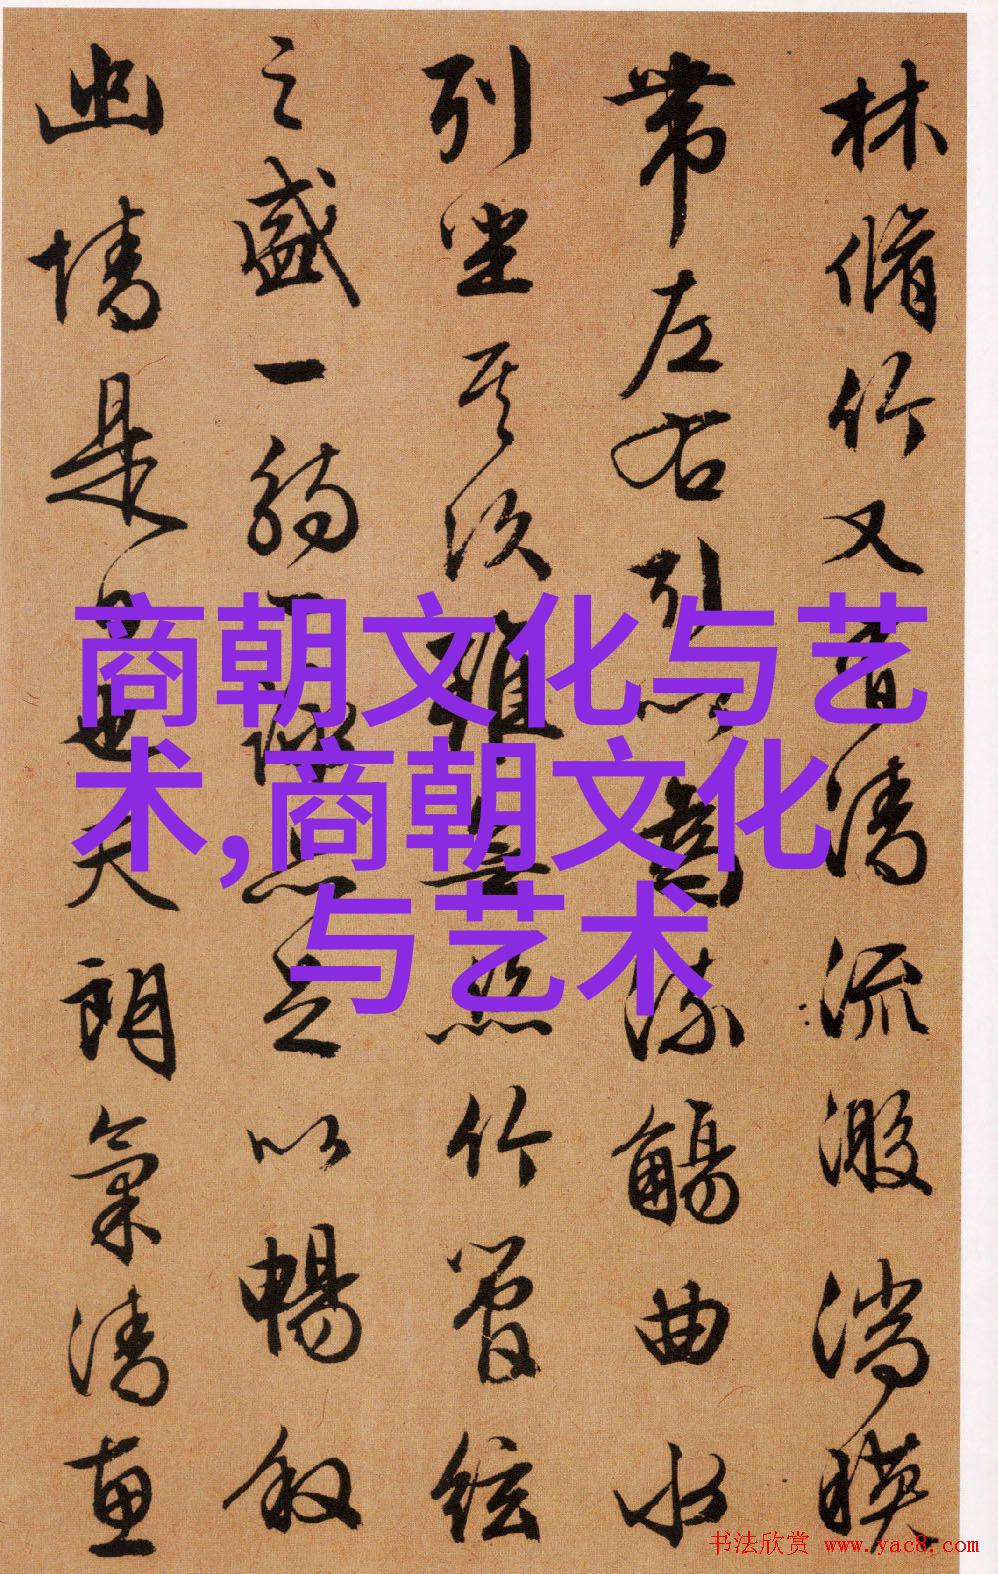 林脩竹又有清流激湍暎
带左右引以為流觴曲水
列坐其次雖無絲竹管絃
之盛一觴一詠亦足以暢叙
幽情是日也天朗氣清惠
商朝文化与艺
术,商朝文化
与艺术
书法欣赏 www.yac8.com